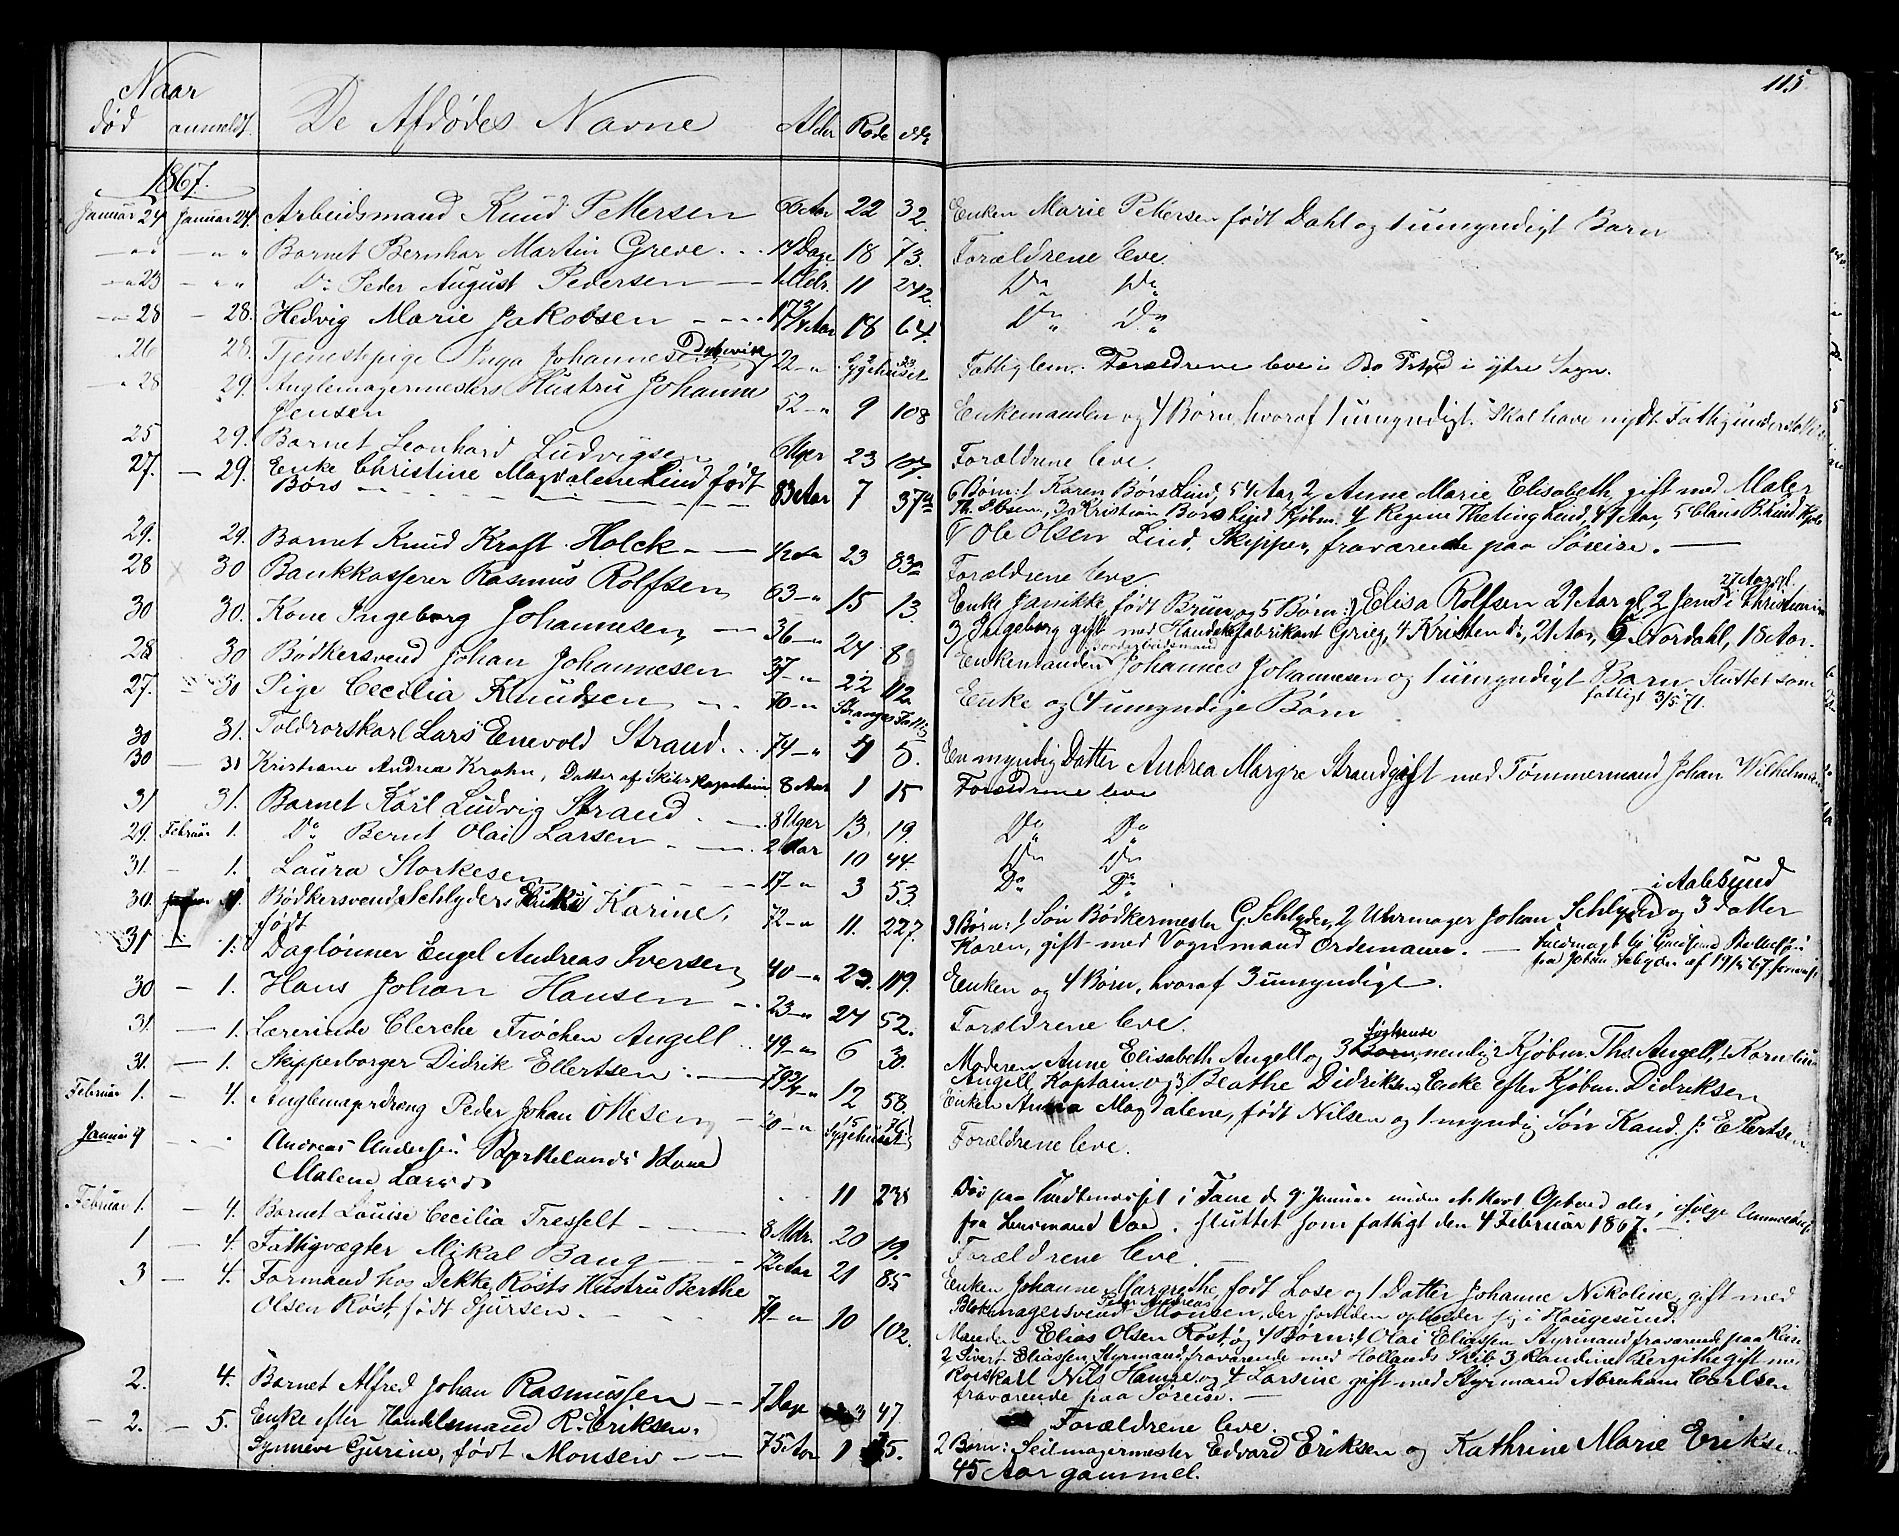 115
Naar
død anmeldt. De Afdødes Navne Alder Rode
1867.
Januar 24 Januar 24. Arbeidsmand Knud Pettersen 22 32. Enken Marie Pettersen født Dahl og 1 umyndigt Barn
Barnet Bernhar Martin Greve 14 Dage 18 73. Forældrene leve.
23 Do Peder August Pedersen 11 242. Do Do
28 28. Hedvig Marie Jakobsen 17 3/4 Aar 18 64. Do Do
26 28. Tjenestepige Inga Johannesen 22 Sygehuset Fattiglem. Forældrene leve i ytre Sogn.
28 29. Huustru Johanna
Jensen 52 9 108 Enkemanden og 4 Børn, hvoraf 1 umyndigt. Skal have nydt
25 29. Barnet Leonhard Ludvigsen 6 Uger 23 107. Forældrene leve.
27. 29. Enke Christine Magdalene Lind født
Børs 83 Aar 7 37 6 Børn: 1 Karen Børs Lind, 54 Aar, 2, Anne Marie Elisabeth gift med Maler
Kristian Børs Lind Kjøbm. 4, Regine Lind, 47 Aar, 5 Claus B. Lind
6 Ole Olsen Lind, Skipper, fraværende paa Søreise.
29. 29. Barnet Knud Kraft Holck 23 83 Forældrene leve.
28 30 Bankkasserer Rasmus Rolfsen 63 15 13. Enke Janikke, født Brun og 5 Børn: 1, Elisa Rolfsen 29 Aar gl, 2 Jens i Christiania 27 Aar gl.
3, Ingeborg gift med Grieg, 4 Kristen 21 Aar, 5 Nordahl, 18 Aar.
30 30. Kone Ingeborg Johannesen 36 24 8 Enkemanden Johannes Johannesen og 1 umyndigt Barn. Sluttet som
fattigt 3/5 71.
28 30 Bødkersvend Johan Johannesen 37 22 112 Enke og 4 umyndige Børn
27. 30 Pige Cecilia Knudsen 70 Stranges Fattig
30 31. Toldrorskarl Lars Enevold Strand 74 4 5. En myndig Datter Andrea Margre Strand gift med Tømmermand Johan Wilhelmsen
30 31 Kristiane Andrea Krohn, Datter af 8 Aar 1 15 Forældrene leve
31 31. Barnet Karl Ludvig Strand 8 Uger 13. 19. Do Do
29. Februar 1. Do Bernt Olai Larsen 2 Aar 10 44. Do Do
31. 1. Laura Storkesen 17 3 53 Do Do
30. 1. Bødkersvend Schlyders Enke Karine,
født 72 11. 227. 3 Børn: 1 Søn Bødkermester G. Schlyder, 2 Uhrmager Johan Schlyder i Aalesund og 3 Datter
Karen, gift med Vognmand Ordemann.
31 1. Daglønner Engel Andreas Iversen 40 23. 119. Enken og 4 Børn, hvoraf 3 umyndige.
30 1. Hans Johan Hansen 23 24 52. Forældrene leve.
31. 1. Lærerinde Clerche Frøchen Angell 49 6 30. Moderen Anne Elisabeth Angell og 3 Søskende myndige Kjøbm. Ths. Angell,
Angell, Kaptain og 3 Beathe Didriksen, Enke efter Kjøbm. Didriksen
31. 1. Skipperborger Didrik Ellertsen 79 3/4 12 58. Enken Anna Magdalene, født Nilsen og 1 myndig Søn Kand. Ellertsen
Februar 1. 4. Peder Johan Ottesen Sygehuset Forældrene leve.
Januar 9 Andreas Andersen Birkelands Kone
Malene 11 238 Død paa i Fane d. 9 Januar
fra Lensmand sluttet som fattigt den 4 Februar 1867.
Februar 1. 4. Barnet Louise Cecilia Tresselt 8 Mdr. 20 19. Forældrene leve.
1 4. Fattigvægter Mikal Bang 72 Aar 21 85 Enken Johanne Margrethe, født Lose og 1 Datter Johanne Nikoline, gift med
Blokmagersvend Peder Andreas Monsen, der fortiden opholder sig i Haugesund.
3 4. Formand hos Dekke, Røsts Hustru Berthe
Olsen Røst, født Sjursen. 71 10 102. Manden Elias Olsen Røst, og 4 Børn: 1 Olai Eliassen Styrmand fraværende paa
2, Sivert Eliassen, Styrmand, fraværende med Hollands Skib, 3, Randine Bergithe gift med
Nils og 4 Larsine gift med Styrmand Abraham Carlsen
fraværende paa Søreise.
2. 4. Barnet Alfred Johan Rasmussen 7 Dage 47. Forældrene leve.
2. 5. Enke efter Handelsmand R. Eriksen.
Synneve Gurine, født Monsen 75 Aar 1 2 Børn: Seilmagermester Edvard Eriksen og Kathrine Marie Eriksen
45 Aar gammel.